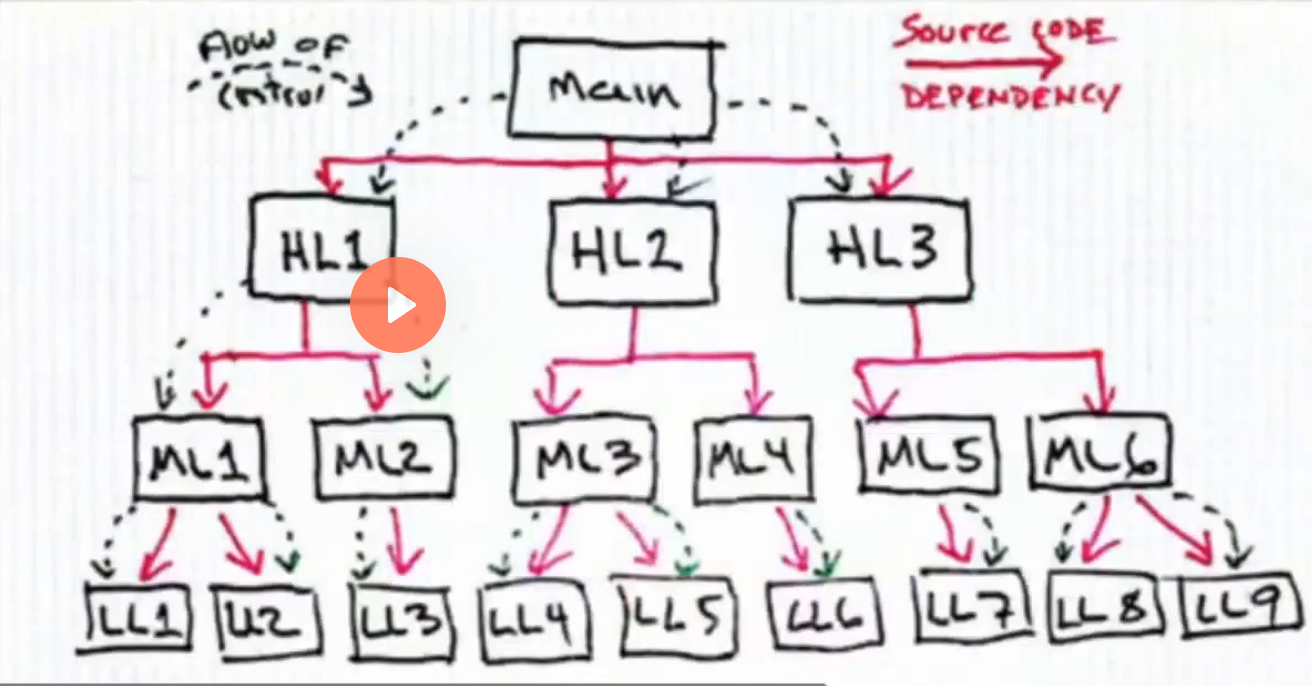 flow of
control
Main
Source code
DEPENDENCY
HL1
HL2
HL3
ML1
ML2
ML3
ML4
ML5
ML6
LL1
LL2
LL3
LL4
LL5
LL6
LL7
LL8
LL9